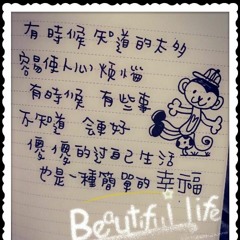 有時候知道的太多
容易使人心煩惱
有時候 有些事
不知道 會更好
傻傻的過自己生活
也是一種簡單的幸福
Beautiful life